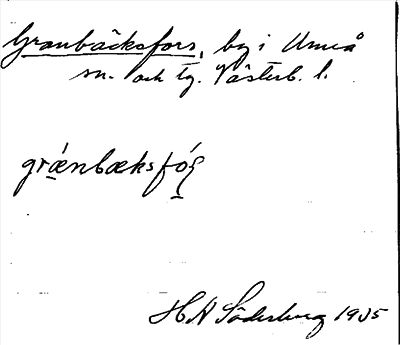 Granbäcksfors, by i Umeå
sn. och tg. Västerb. l.
grǽnbæksfóʂ
H A Söderberg 1935